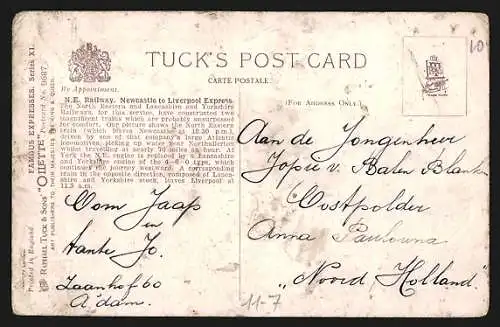 TUCK'S POST CARD
CARTE POSTALE
By Appointment.
(FOR ADDRESS ONLY.)
N.E. Railway. Newcastle to Liverpool Express.
The North Eastern and Lancashire and Yorkshire
Railways, for this service, have constructed two
magnificent trains which are probably unsurpassed
for comfort. Our picture shows the North Eastern
train (which leaves Newcastle at 12.30 p.m.)
drawn by one of this company's large Atlantic
locomotives, picking up water near Northallerton
whilst travelling nearly 70 miles an hour. At
York the N.E. engine is replaced by a Lancashire
and Yorkshire engine of the 4-6-0 type, which
A corresponding train
runs in the opposite direction, composed of Lancashire
and Yorkshire stock, leaves Liverpool at
11.5 a.m.
RAPHAEL TUCK & SONS' "OILETTE" Postcard No. 9687.
FAMOUS EXPRESSES. Series XI.
ART PUBLISHERS TO THEIR MAJESTIES THE KING & QUEEN.
Printed in England
Oom Jaap
en
tante Jo.
Zaanhof 60
A'dam.
Aan de Jongenheer
Jopie v. Balen Blanken
Oostpolder
Anna Paulowna
"Noord Holland."
11-7
10